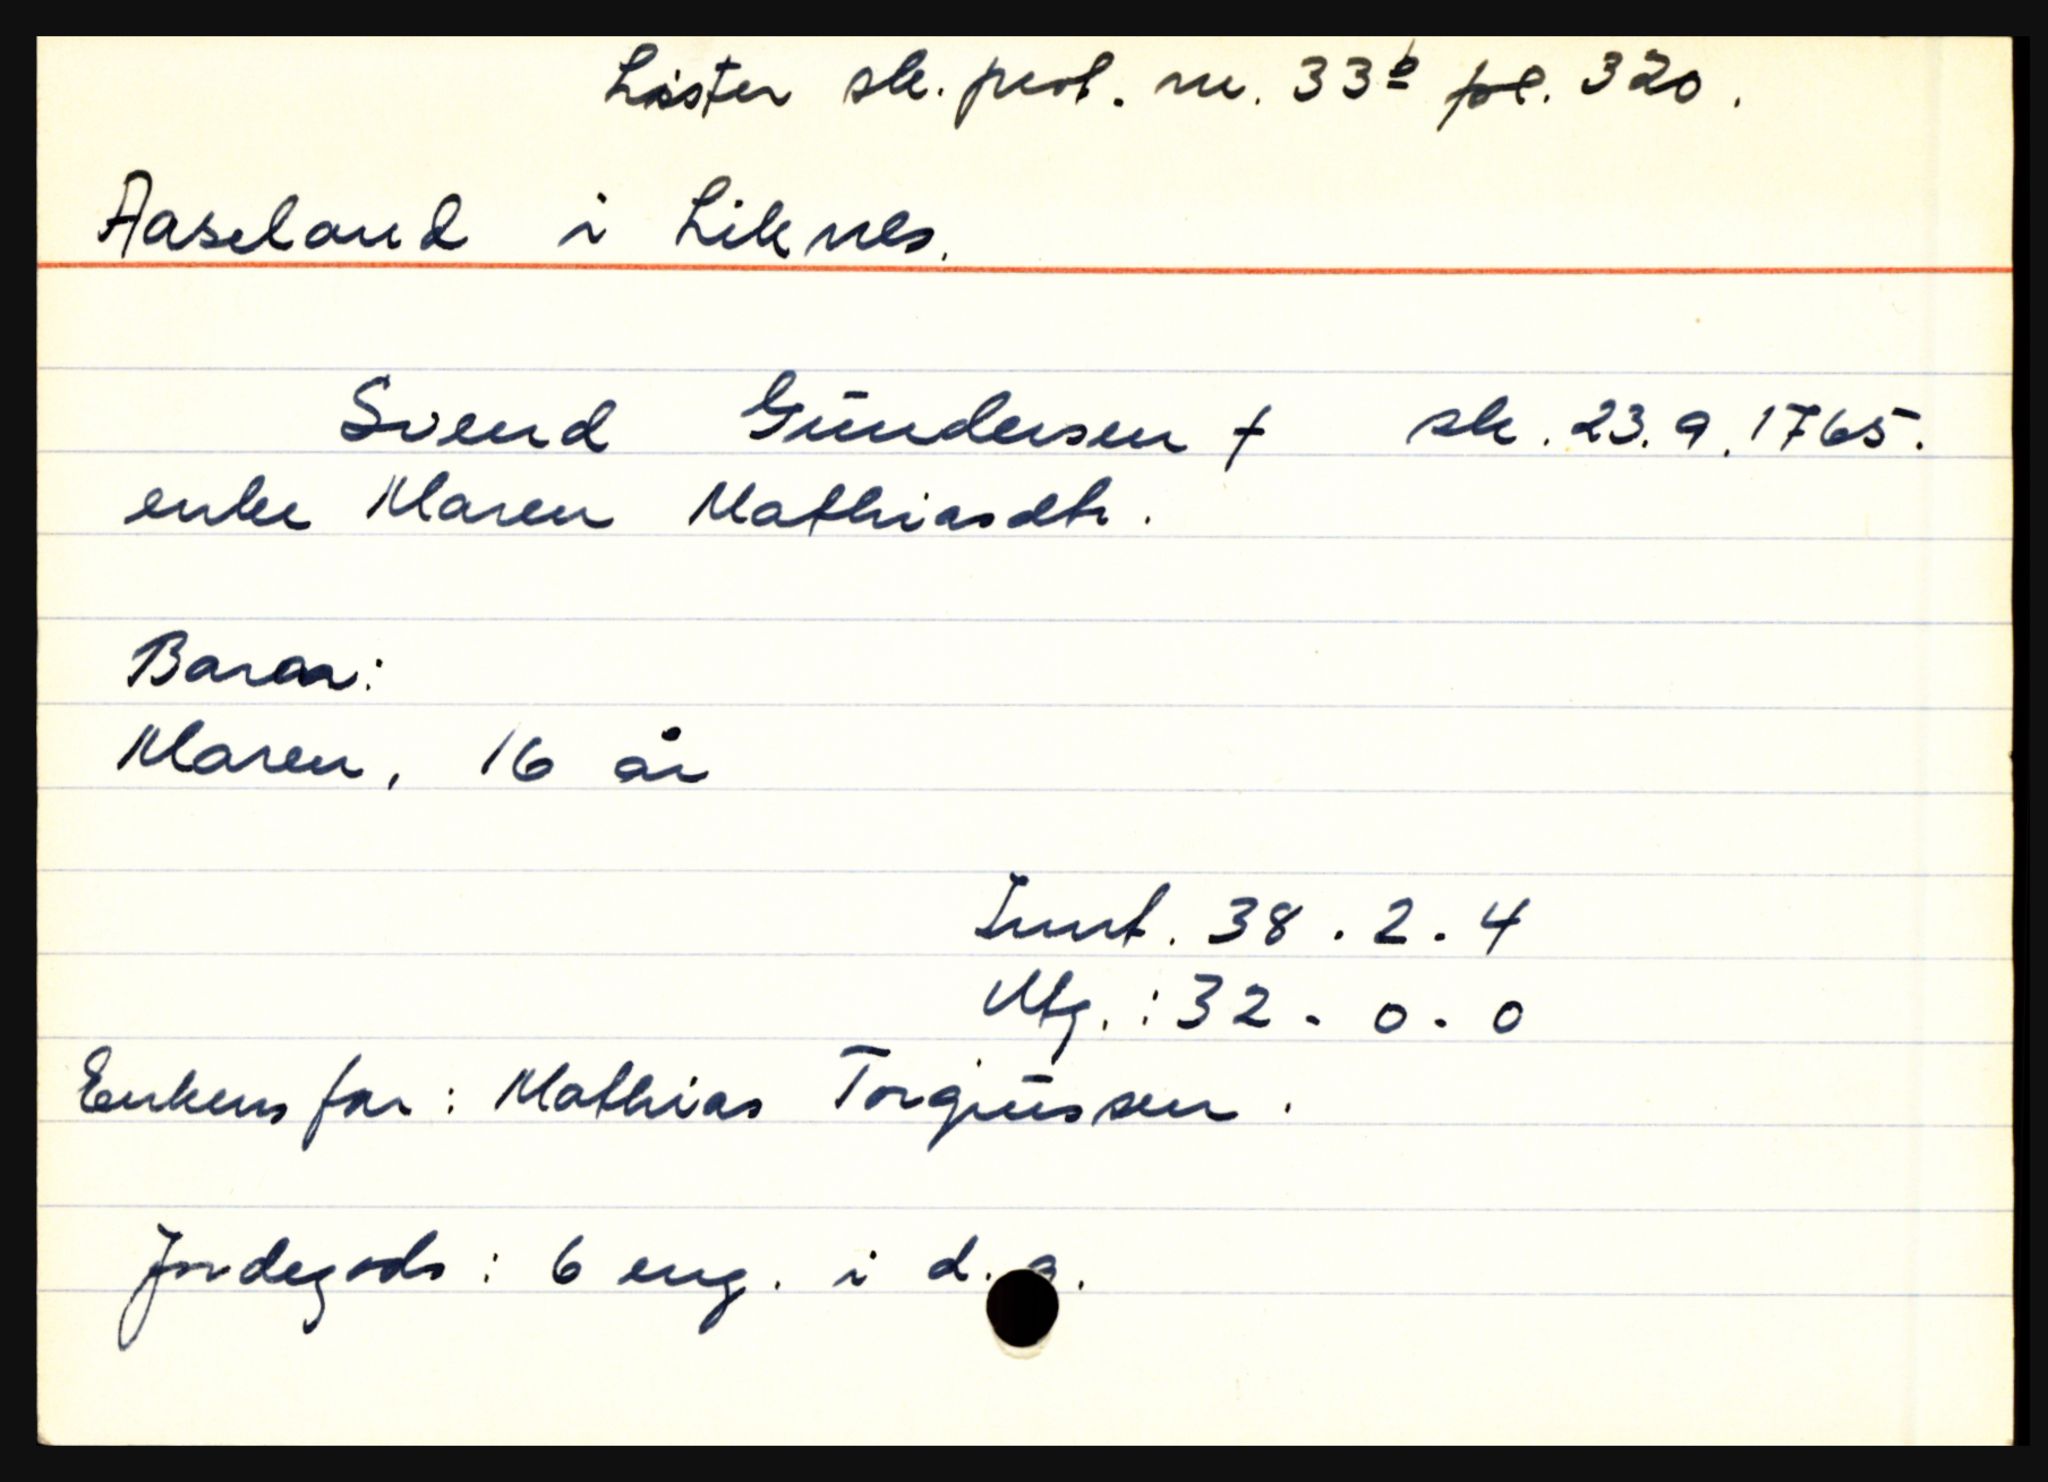 Lister sk. prot. nr. 33b fol. 320.
Aaseland i Liknes.
Svend Gundersen † sk. 23.9.1765.
enke Maren Mathiasdtr.
Barn:
Maren, 16 år
Innt. 38.2.4
Utg.: 32.0.0
Enkens far: Mathias Torgiussen.
Jordegods: 6 eng. i d. g.